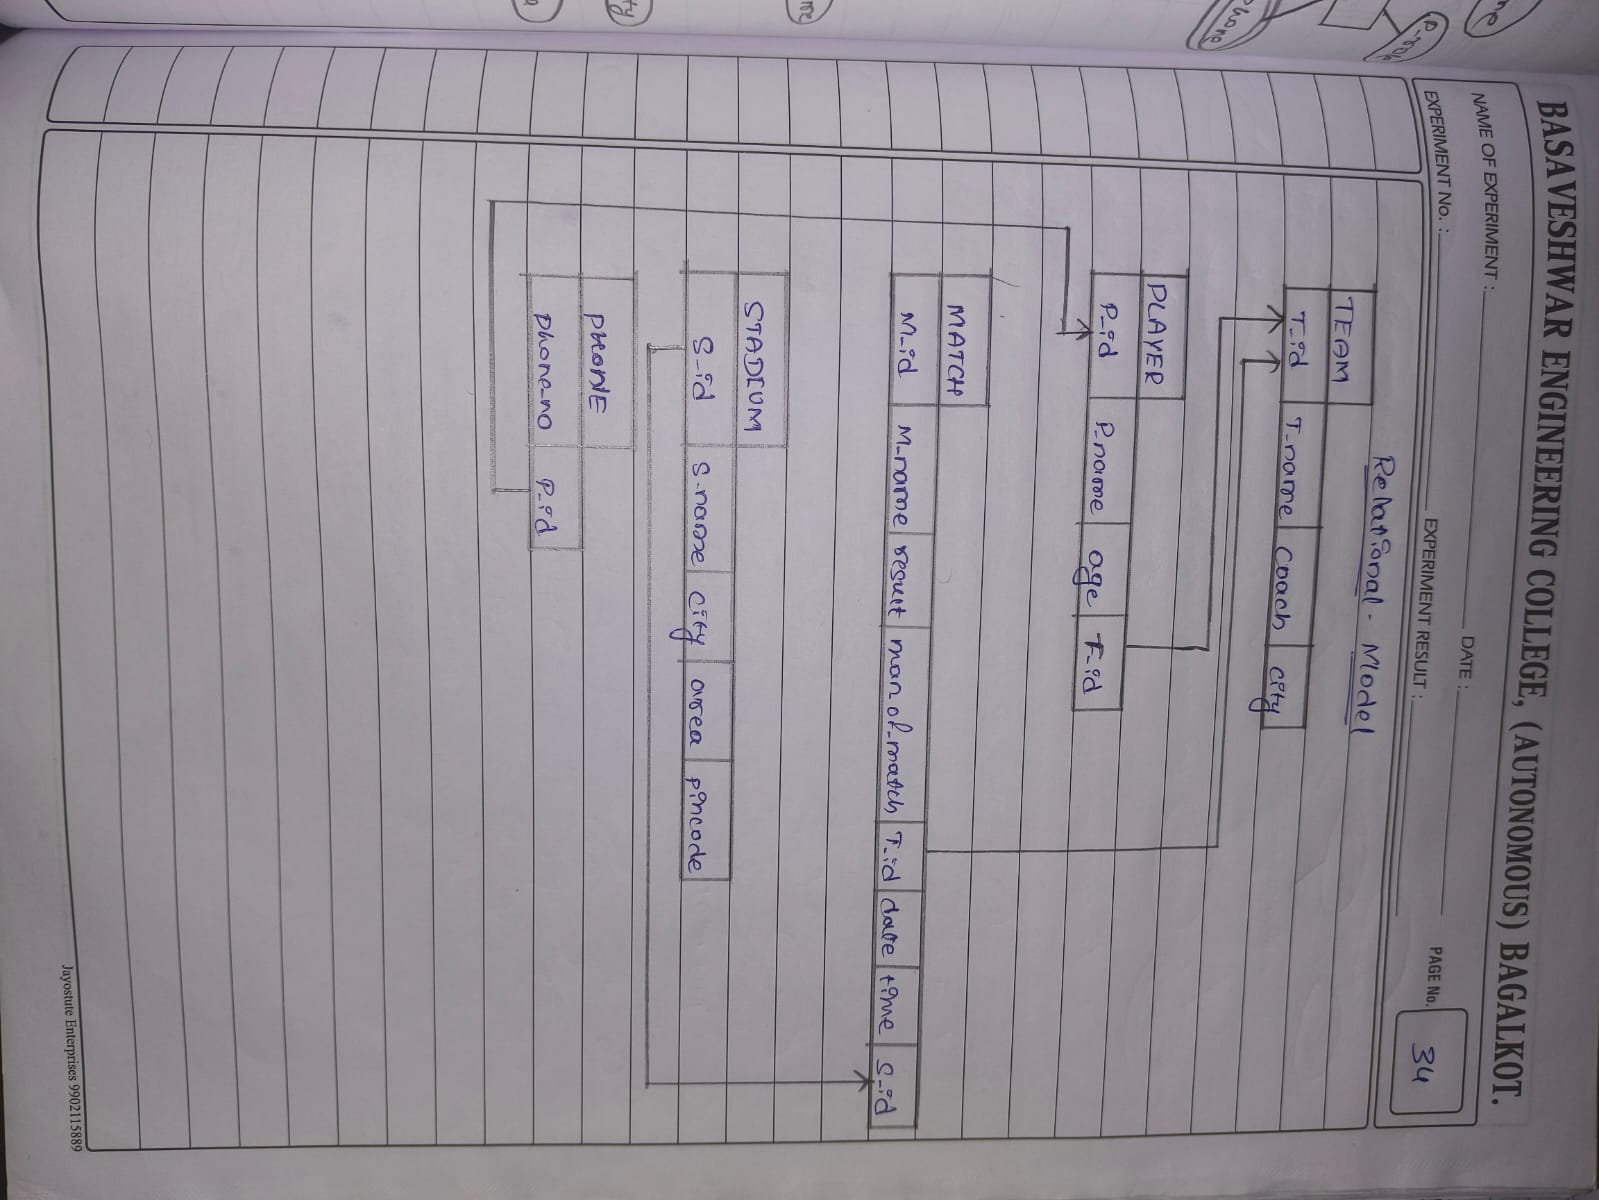 BASAVESHWAR ENGINEERING COLLEGE, (AUTONOMOUS) BAGALKOT.
NAME OF EXPERIMENT : DATE :
EXPERIMENT No. : EXPERIMENT RESULT : PAGE No. 34
Relational - Model
TEAM
T_id T_name coach city
PLAYER
P_id P_name age T_id
MATCH
M_id M_name result man of_match T_id date time S_id
STADIUM
S_id S_name city area pincode
PHONE
phone_no P_id
Jayostute Enterprises 9902115889